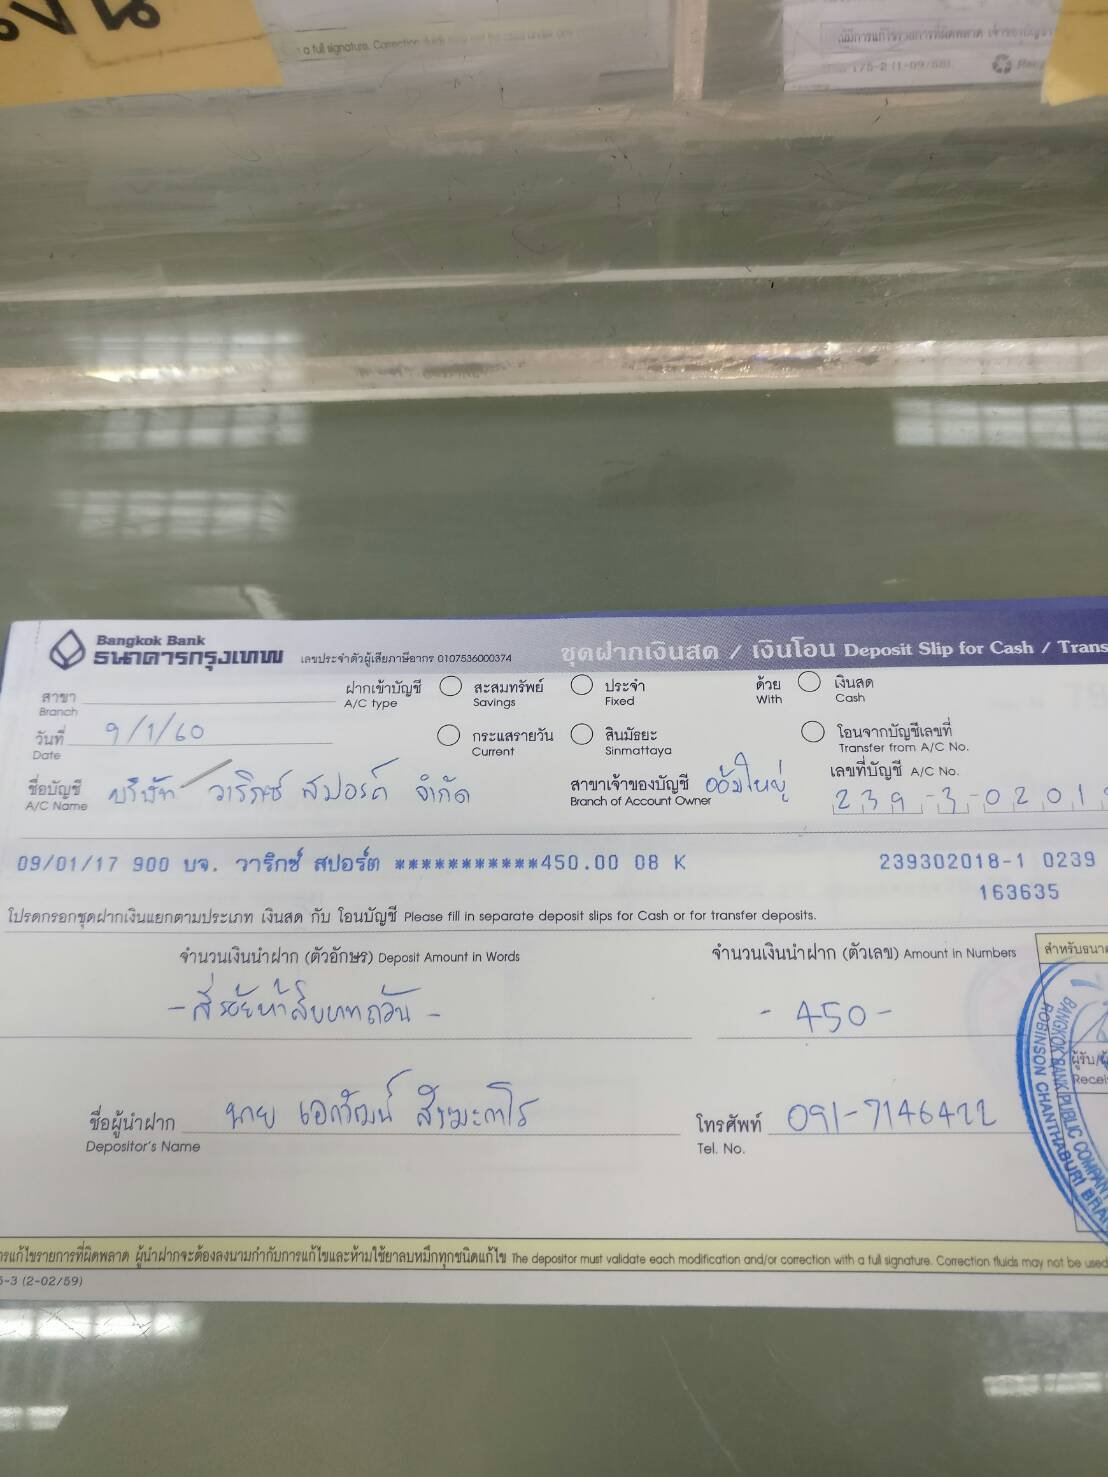 a full signature. Correction fluids may not be used under any
175-2 (1-09/58)
Bangkok Bank
ธนาคารกรุงเทพ
เลขประจำตัวผู้เสียภาษีอากร 0107536000374
ชุดฝากเงินสด / เงินโอน Deposit Slip for Cash / Trans
สาขา
Branch
ฝากเข้าบัญชี
A/C type
สะสมทรัพย์
Savings
ประจำ
Fixed
ด้วย
With
เงินสด
Cash
วันที่ 9/1/60
Date
กระแสรายวัน
Current
สินมัธยะ
Sinmattaya
โอนจากบัญชีเลขที่
Transfer from A/C No.
ชื่อบัญชี บริษัท วาริกซ์ สปอร์ต จำกัด
A/C Name
สาขาเจ้าของบัญชี อ้อมใหญ่
Branch of Account Owner
เลขที่บัญชี A/C No.
239-3-0201
09/01/17 900 บจ. วาริกซ์ สปอร์ต ***********450.00 08 K 239302018-1 0239
163635
โปรดกรอกชุดฝากเงินแยกตามประเภท เงินสด กับ โอนบัญชี Please fill in separate deposit slips for Cash or for transfer deposits.
จำนวนเงินนำฝาก (ตัวอักษร) Deposit Amount in Words
จำนวนเงินนำฝาก (ตัวเลข) Amount in Numbers
สำหรับธนา
- สี่ร้อยห้าสิบบาทถ้วน -
- 450 -
ผู้รับ/
Recei
BANGKOK BANK PUBLIC COMPAN
ROBINSON CHANTHABURI BRAN
ชื่อผู้นำฝาก นาย เอกวัฒน์
Depositor's Name
โทรศัพท์ 091-7146422
Tel. No.
ารแก้ไขรายการที่ผิดพลาด ผู้นำฝากจะต้องลงนามกำกับการแก้ไขและห้ามใช้ยาลบหมึกทุกชนิดแก้ไข The depositor must validate each modification and/or correction with a full signature. Correction fluids may not be used
5-3 (2-02/59)